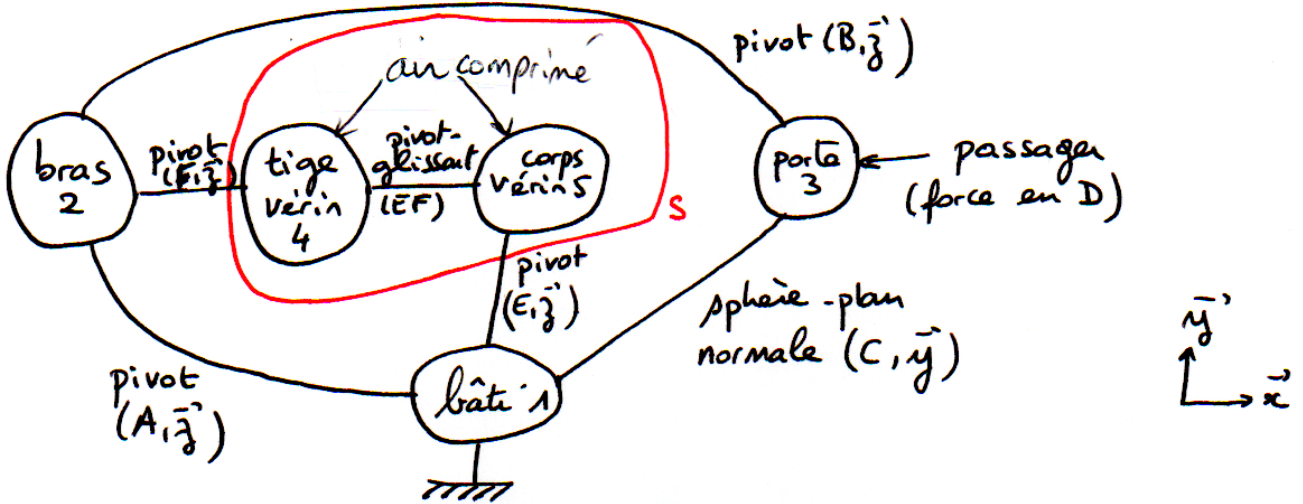 pivot (B, z⃗)
air comprimé
bras
2
pivot
(F, z⃗)
tige
vérin
4
pivot-
glissant
(EF)
corps
vérin 5
porte
3
passager
(force en D)
S
pivot
(E, z⃗)
sphère-plan
normale (C, y⃗)
pivot
(A, z⃗)
bâti 1
y⃗
x⃗